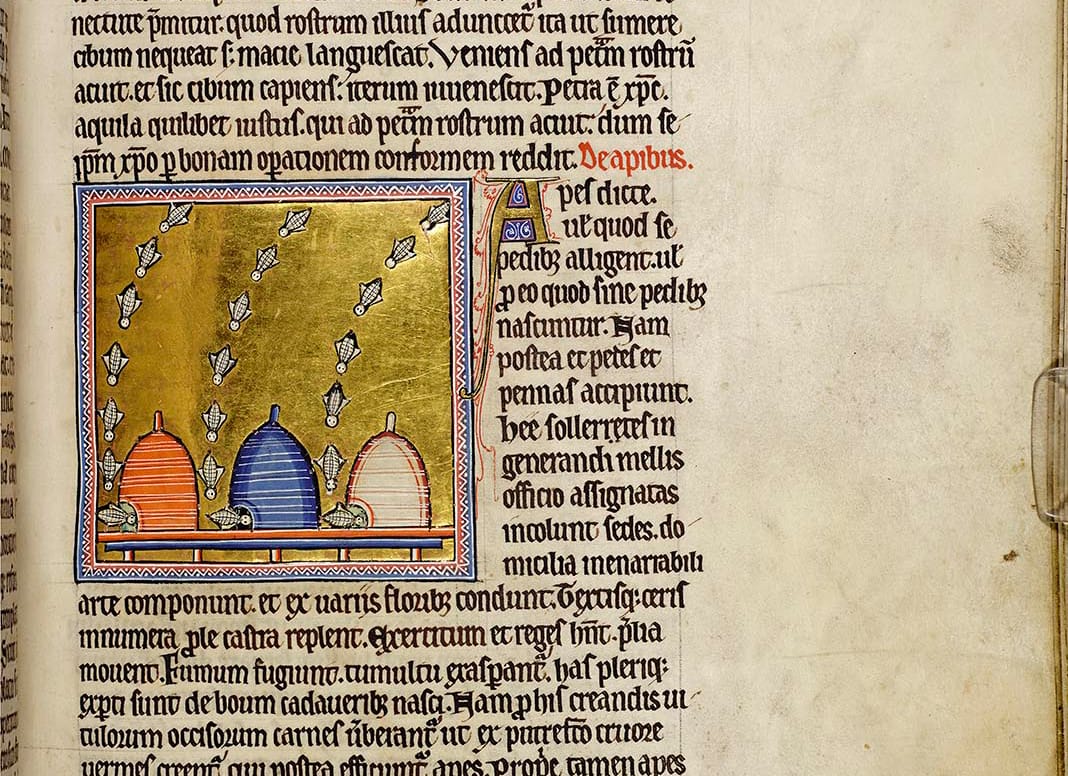 nectute p̄mitur. quod rostrum illius aduncet᷑ ita ut sumere
cibum nequeat s; macie languescat. Veniens ad pet̄m rostrū
acuit. et sic cibum capiens: iterum iuuenescit. Petra ē xp̄c.
aquila quilibet iustus. qui ad pet̄m rostrum acuit: dum se
ip̄m xp̄o ꝑ bonam oꝑationem conformem reddit. De apibus.
Apes dicte.
ut̄ quod se
pedibꝫ alligent. ut̄
ꝓ eo quod sine pedibꝫ
nascuntur. Nam
postea et pedes et
pennas accipiunt.
hee sollertes in
generandi mellis
officio assignatas
incolunt sedes. do
micilia inenarrabili
arte componunt. et ex uariis floribꝫ condunt. Textisqꝫ ceris
innumera ꝓle castra replent. Exercitum et reges hn̄t. p̄lia
mouent. Fumum fugiunt. tumultu exasꝑant᷑. has pleriqꝫ
exꝑti sunt de boum cadaueribꝫ nasci. Nam ꝓ his creandis ui
tulorum occisorum carnes ūberant᷑ ut ex putrefc̄o cruore
uermes creent᷑ qui postea efficiunt᷑ apes. Prop̄e tamen apes